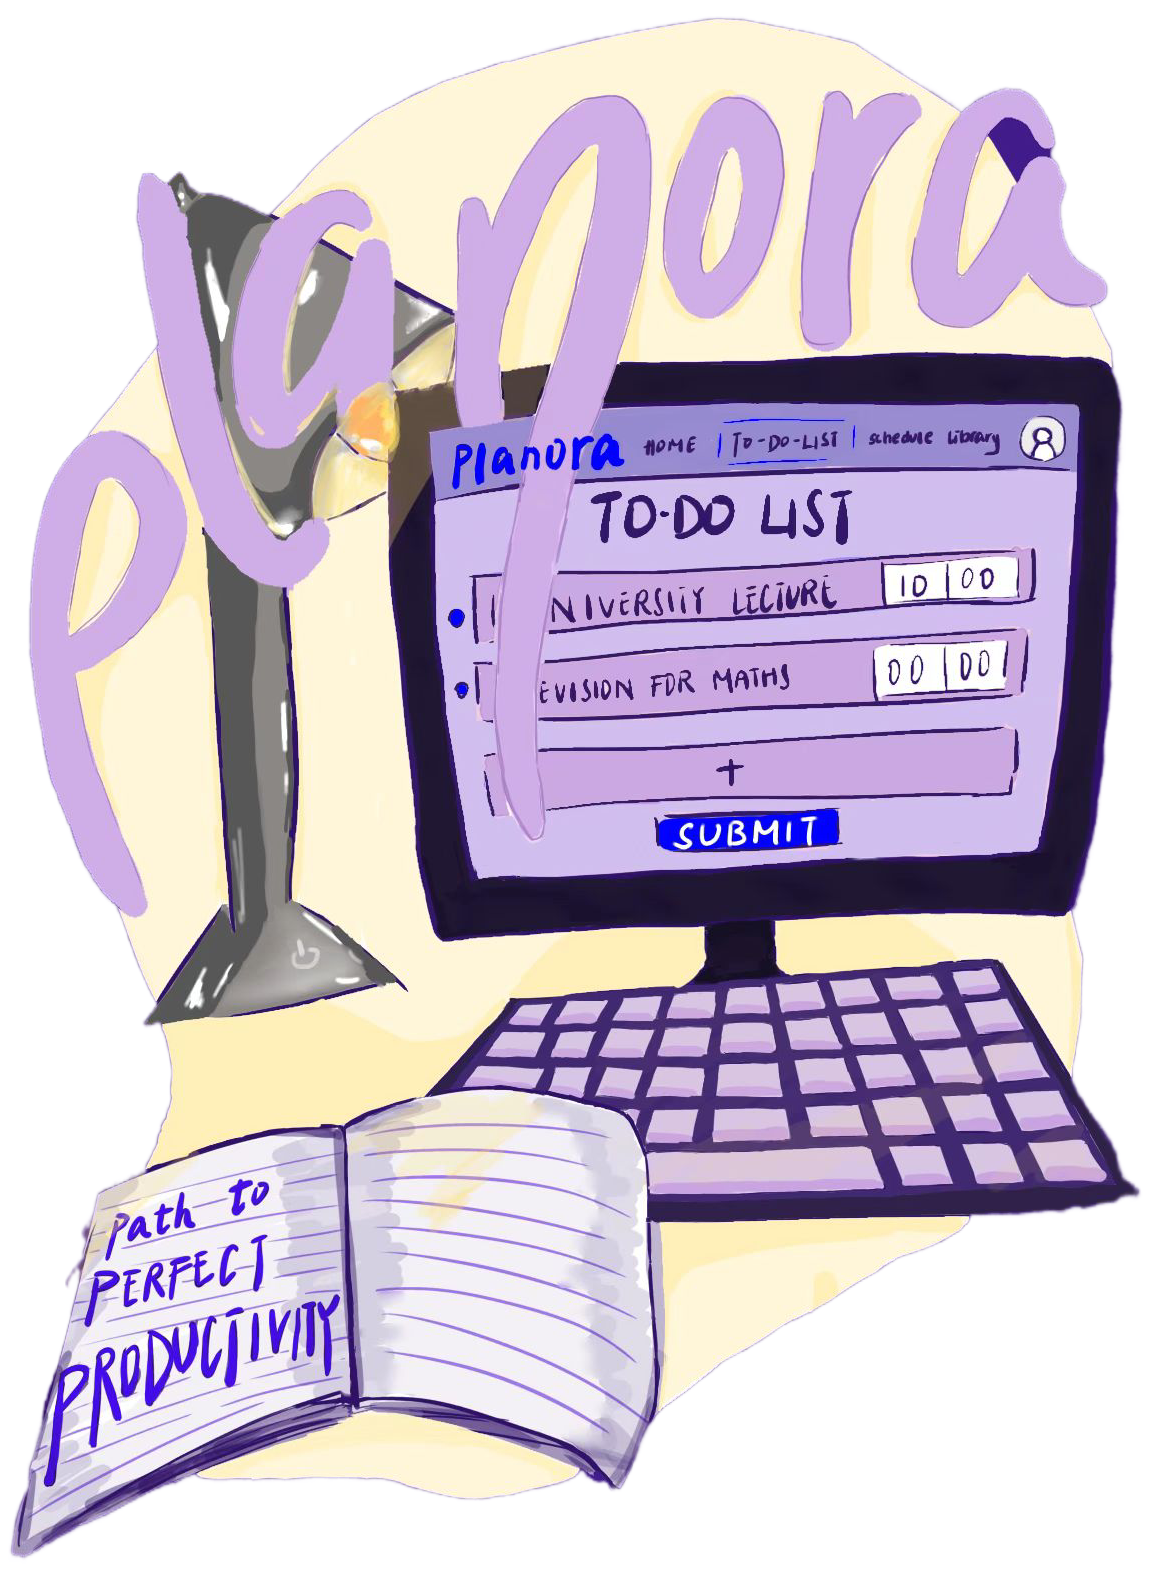 planora
Planora HOME TO-DO-LIST schedule library
TO-DO LIST
NIVERSITY LECTURE 10 00
EVISION FOR MATHS 00 00
+
SUBMIT
Path to
PERFECT
PRODUCTIVITY